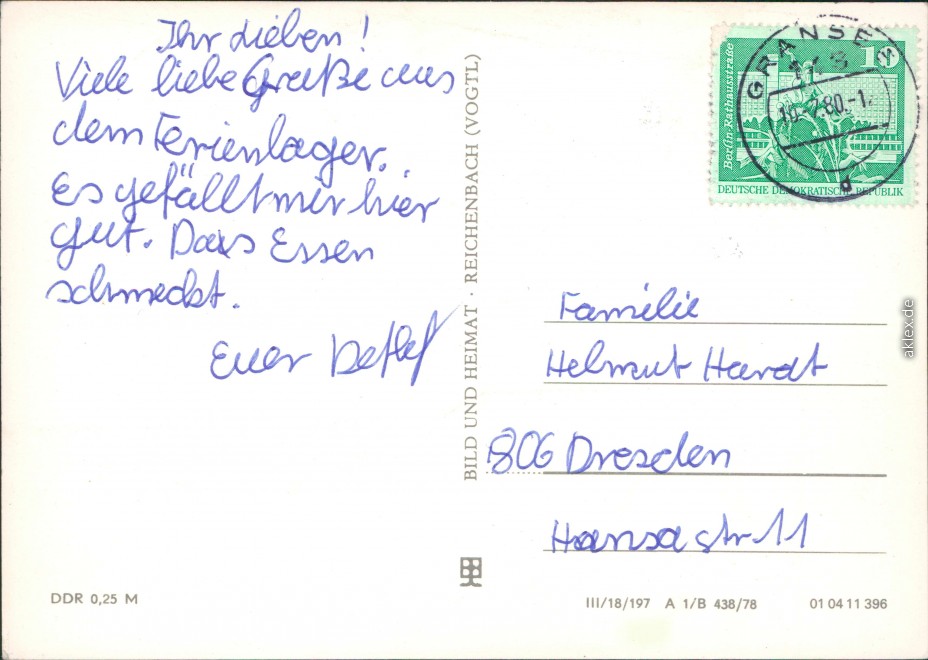 Ihr Lieben!
Viele liebe Grüße aus
dem Ferienlager.
Es gefällt mir hier
gut. Das Essen
schmeckt.
Euer Detlef
BILD UND HEIMAT · REICHENBACH (VOGTL)
GRANSEE 2
10.-7.80.-1
a
10
Berlin-Rathausstraße
DEUTSCHE DEMOKRATISCHE REPUBLIK
Familie
Helmut Hardt
806 Dresden
Hansastr. 11
aklex.de
DDR 0,25 M
III/18/197 A 1/B 438/78 01 04 11 396